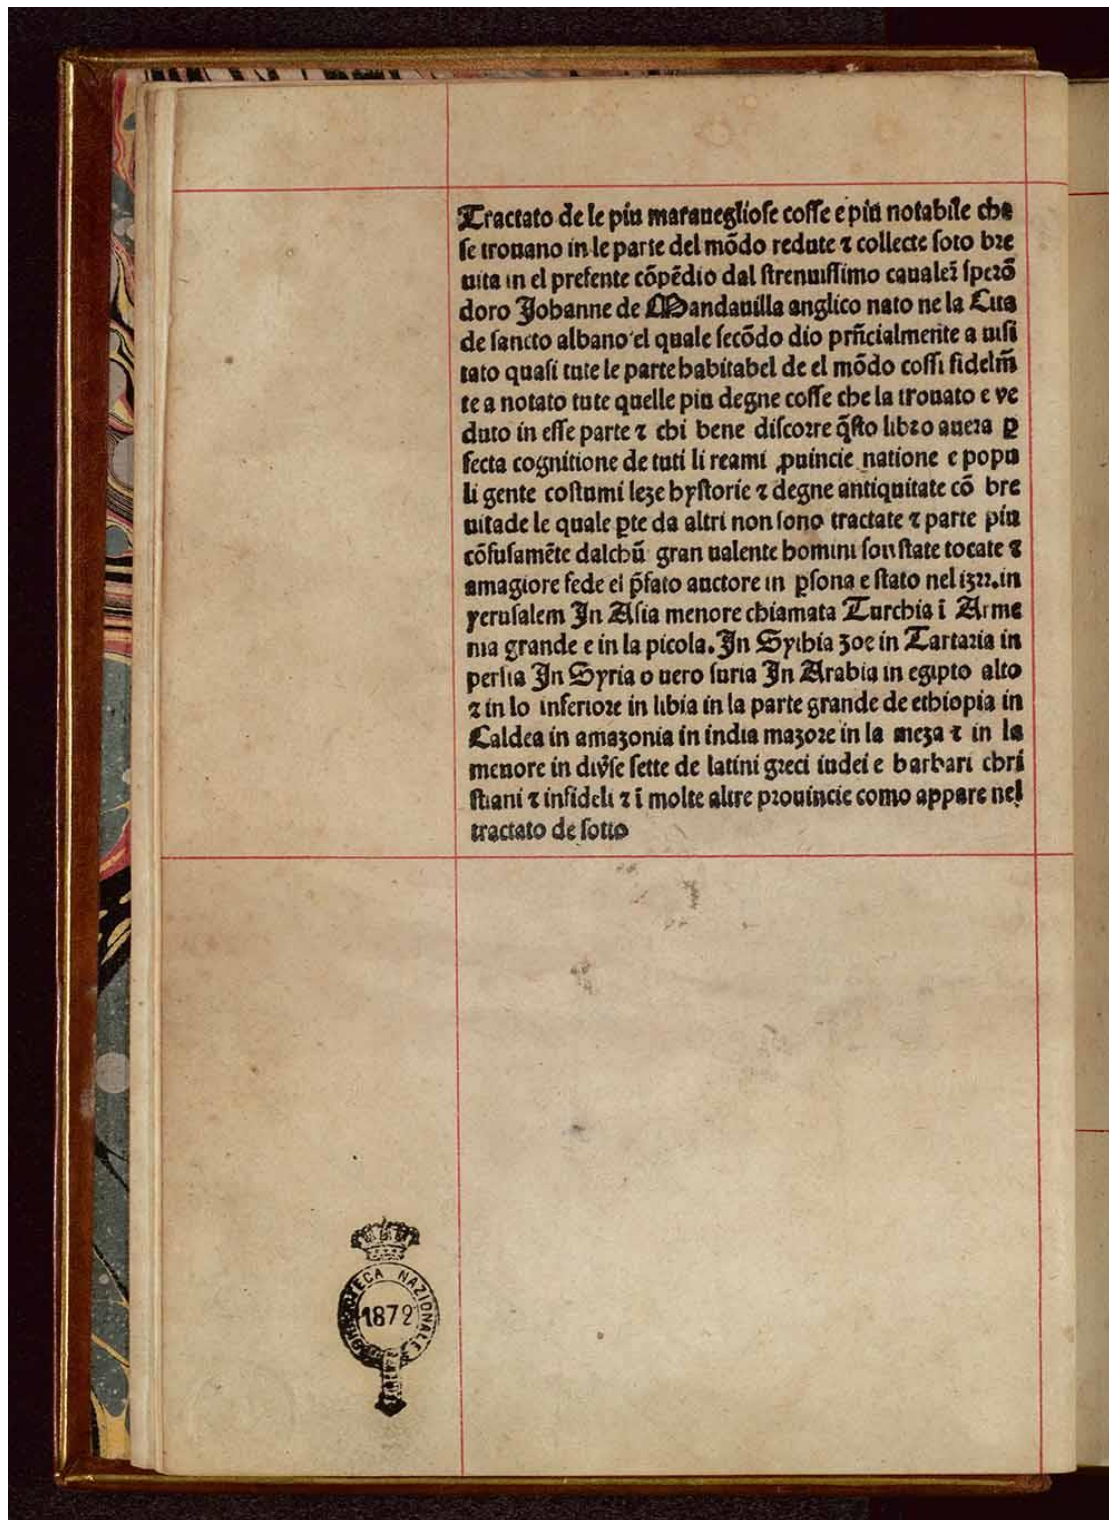 Tractato de le piu marauegliose cosse e piu notabile che
se trouano in le parte del mõdo redute ⁊ collecte soto bre
uita in el presente cõpẽdio dal strenuissimo caualer̃ sperõ
doro Johanne de Mandauilla anglico nato ne la Cita
de sancto albano el quale secõdo dio prñcialmente a uisi
tato quasi tute le parte habitabel de el mõdo cossi fidelm̃
te a notato tute quelle piu degne cosse che la trouato e ve
duto in esse parte ⁊ chi bene discorre q̃sto libro auera ꝑ
fecta cognitione de tuti li reami ꝓuincie natione e popu
li gente costumi leze hystorie ⁊ degne antiquitate cõ bre
uitade le quale ꝑte da altri non sono tractate ⁊ parte piu
cõfusamẽte dalchũ gran ualente homini son state tocate ⁊
amagiore fede el p̃fato auctore in ꝑsona e stato nel 1322. in
yerusalem In Asia menore chiamata Turchia ĩ Arme
nia grande e in la picola. In Sythia zoe in Tartaria in
persia In Syria o uero suria In Arabia in egipto alto
⁊ in lo inferiore in libia in la parte grande de ethiopia in
Caldea in amazonia in india mazore in la meza ⁊ in la
menore in diṽse sette de latini greci iudei e barbari chri
stiani ⁊ infideli ⁊ ĩ molte altre prouincie como appare nel
tractato de sotto
BIBLIOTECA NAZIONALE
1872